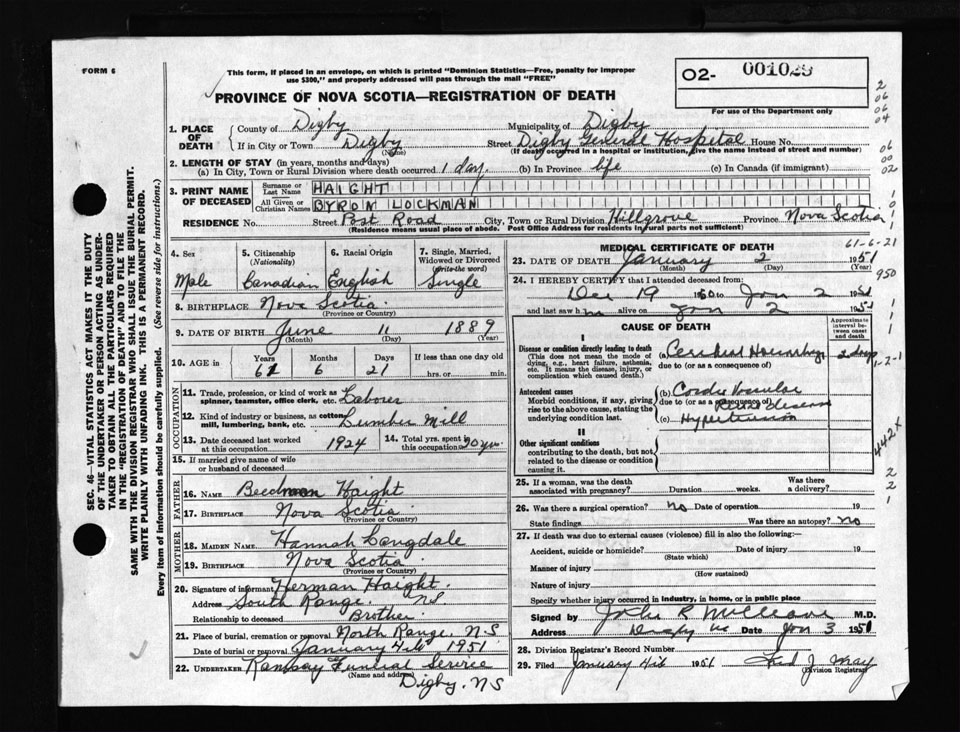 FORM 6
This form, if placed in an envelope, on which is printed "Dominion Statistics—Free, penalty for improper
use $300," and properly addressed will pass through the mail "FREE"
PROVINCE OF NOVA SCOTIA—REGISTRATION OF DEATH
02- 001029
For use of the Department only
2
06
06
04
06
00
02
1. PLACE OF DEATH
County of Digby Municipality of Digby
If in City or Town Digby Street Digby General Hospital House No.
(Name) (If death occurred in a hospital or institution, give the name instead of street and number)
2. LENGTH OF STAY (in years, months and days)
(a) In City, Town or Rural Division where death occurred 1 day (b) In Province life (c) In Canada (if immigrant)
3. PRINT NAME OF DECEASED
Surname or Last Name HAIGHT
All Given or Christian Names BYRON LOCKMAN
RESIDENCE No. Street Post Road City, Town or Rural Division Hillgrove Province Nova Scotia
(Residence means usual place of abode. Post Office Address for residents in rural parts not sufficient)
4. Sex Male
5. Citizenship (Nationality) Canadian
6. Racial Origin English
7. Single, Married, Widowed or Divorced (write the word) Single
8. BIRTHPLACE Nova Scotia
(Province or Country)
9. DATE OF BIRTH June 11 1889
(Month) (Day) (Year)
10. AGE in Years 61 Months 6 Days 21 If less than one day old
hrs. or min.
OCCUPATION
11. Trade, profession, or kind of work as spinner, teamster, office clerk, etc. Laborer
12. Kind of industry or business, as cotton mill, lumbering, bank, etc. Lumber Mill
13. Date deceased last worked at this occupation 1924
14. Total yrs. spent in this occupation 20 yrs.
15. If married give name of wife or husband of deceased
FATHER
16. NAME Haight
17. BIRTHPLACE Nova Scotia
(Province or Country)
MOTHER
18. MAIDEN NAME Hannah Langdale
19. BIRTHPLACE Nova Scotia
(Province or Country)
20. Signature of informant Herman Haight.
Address South Range. NS
Relationship to deceased Brother
21. Place of burial, cremation or removal North Range, N.S
Date of burial or removal January 4th 1951
22. UNDERTAKER Ramsay Funeral Service
(Name and address)
Digby, NS
MEDICAL CERTIFICATE OF DEATH
61-6-21
23. DATE OF DEATH January 2 1951
(Month) (Day) (Year)
950
24. I HEREBY CERTIFY that I attended deceased from:
Dec 19 1950 to Jan 2 1951
and last saw him alive on Jan 2 1951
CAUSE OF DEATH
Approximate interval between onset and death
I
Disease or condition directly leading to death
(This does not mean the mode of dying, e.g., heart failure, asthenia, etc. It means the disease, injury, or complication which caused death.)
(a) Cerebral Hemorrhage 2 days
due to (or as a consequence of)
1-2-1
Antecedent causes
Morbid conditions, if any, giving rise to the above cause, stating the underlying condition last.
(b) Cardio Vascular
due to (or as a consequence of)
Renal disease
(c) Hypertension
442X
II
Other significant conditions
contributing to the death, but not related to the disease or condition causing it.
2
2
1
25. If a woman, was the death associated with pregnancy? Duration weeks. Was there a delivery?
26. Was there a surgical operation? no Date of operation 19
State findings Was there an autopsy? no
27. If death was due to external causes (violence) fill in also the following:—
Accident, suicide or homicide? Date of injury 19
(State which)
Manner of injury
(How sustained)
Nature of injury
Specify whether injury occurred in industry, in home, or in public place
Signed by John R McCleave M.D.
Address Digby NS Date Jan 3 1951
28. Division Registrar's Record Number
29. Filed January 4th 1951 Fred J. May
(Division Registrar)
SEC. 46—VITAL STATISTICS ACT MAKES IT THE DUTY
OF THE UNDERTAKER OR PERSON ACTING AS UNDERTAKER
TO OBTAIN ALL THE PARTICULARS REQUIRED
IN THE "REGISTRATION OF DEATH" AND TO FILE THE
SAME WITH THE DIVISION REGISTRAR WHO SHALL ISSUE THE BURIAL PERMIT.
WRITE PLAINLY WITH UNFADING INK. THIS IS A PERMANENT RECORD.
Every item of information should be carefully supplied. (See reverse side for instructions.)